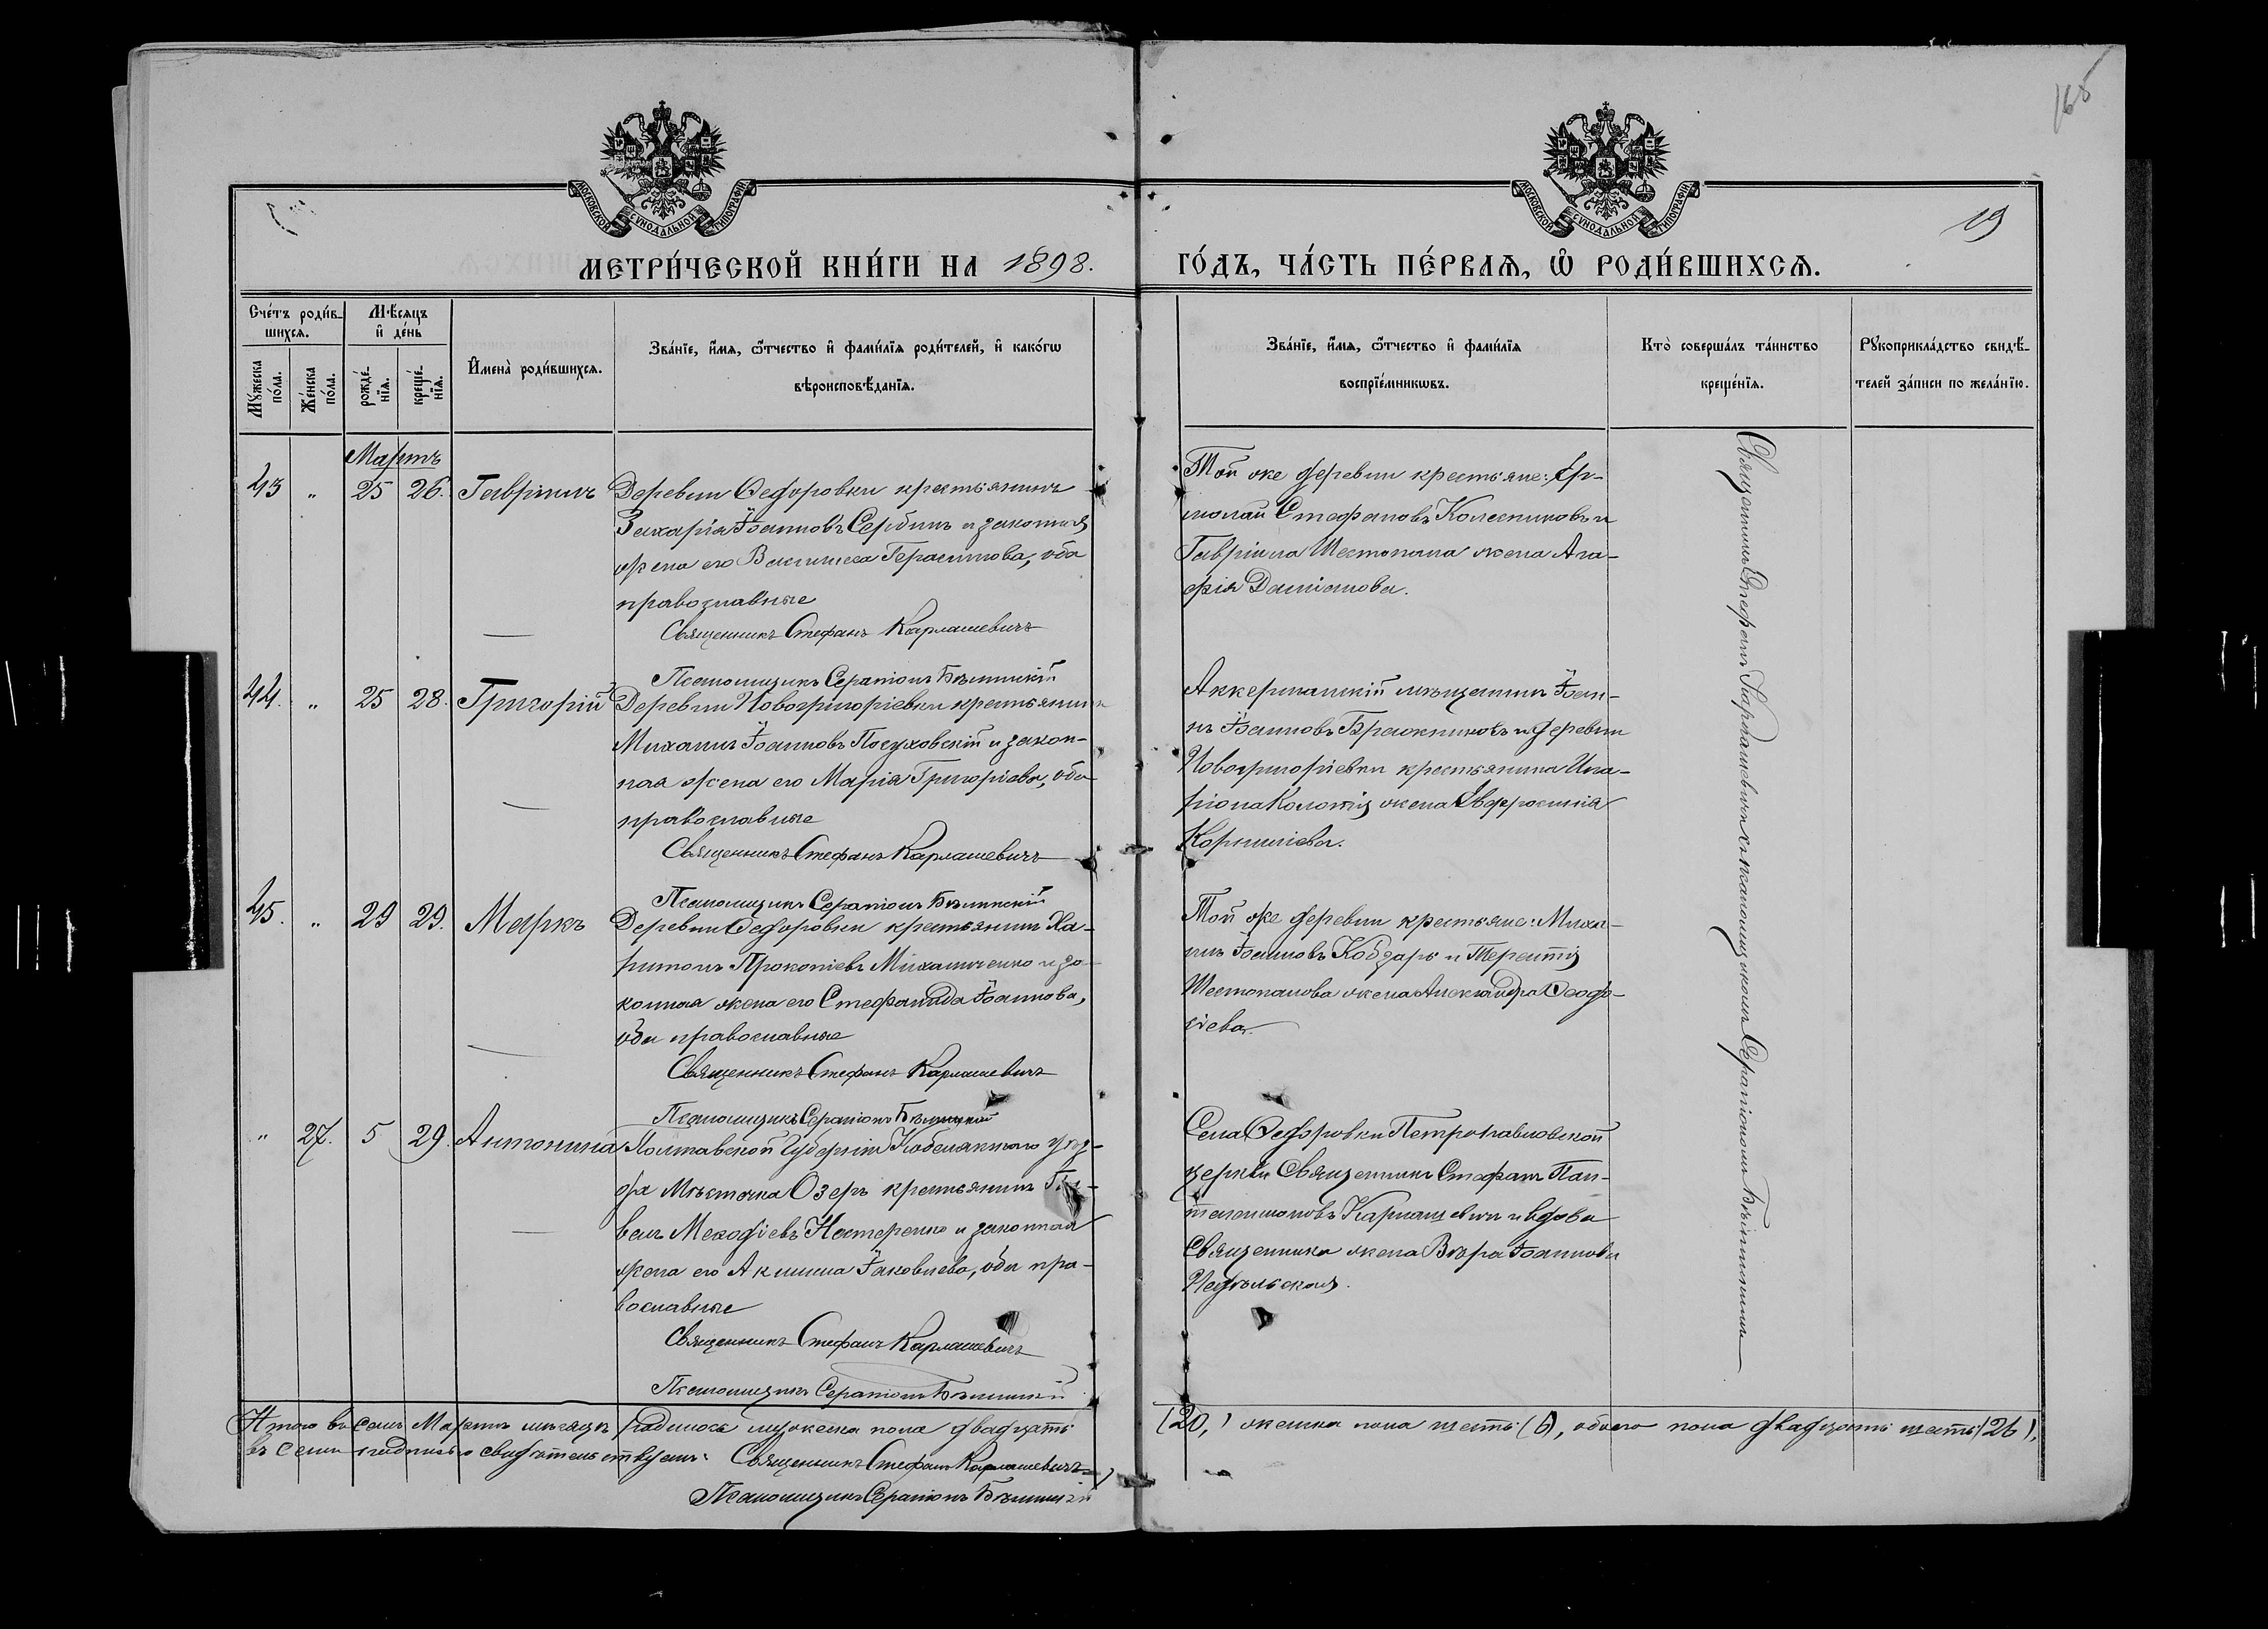 165
19
МОСКОВСКОЙ СѴНОДАЛЬНОЙ ТИПОГРАФІИ
МОСКОВСКОЙ СѴНОДАЛЬНОЙ ТИПОГРАФІИ
МЕТРИ́ЧЕСКОЙ КНИ́ГИ НА 1898.
ГО́ДЪ, ЧА́СТЬ ПЕ́РВАѦ, Ѡ҆ РОДИ́ВШИХСѦ.
Сче́тъ роди́в-
шихсѧ.
Мꙋ́жеска по́ла.
Же́нска по́ла.
Мѣ́сѧцъ
и҆ де́нь
рожде́-
нїѧ.
креще́-
нїѧ.
И҆мена̀ роди́вшихсѧ.
Зва́нїе, и҆́мѧ, ѻ҆́тчество и҆ фами́лїѧ роди́телей, и҆ како́гѡ
вѣроисповѣ́данїѧ.
Зва́нїе, и҆́мѧ, ѻ҆́тчество и҆ фами́лїѧ
воспрїе́мникѡвъ.
Кто̀ соверша́лъ та́инство
креще́нїѧ.
Рꙋкоприкла́дство свидѣ́-
телей за́писи по жела́нїю.
Мартъ
43 " 25 26. Гавріилъ
Деревни Ѳедоровки крестьянинъ
Захарія Іоанновъ Сербинъ и законная
жена его Василиса Герасимова, оба
православные
Священникъ Стефанъ Карпашевичъ
Псаломщикъ Серапіонъ Бѣлинскій
Той же деревни крестьяне: Ер-
молай Стефановъ Колесниковъ и
Гавріила Шестопала жена Ага-
фія Даміанова.
44. " 25 28. Григорій
Деревни Новогригоріевки крестьянинъ
Михаилъ Іоанновъ Посуховскій и закон-
ная жена его Марія Григоріева, оба
православные
Священникъ Стефанъ Карпашевичъ
Псаломщикъ Серапіонъ Бѣлинскій
Аккерманскій мѣщанинъ Іоан-
нъ Іоанновъ Бражниковъ и деревни
Новогригоріевки крестьянина Ила-
ріона жена Евфросинія
Корниліева.
45. " 29 29. Маркъ
Деревни Ѳедоровки крестьянинъ Ха-
ритонъ Прокопіевъ Михайличенко и за-
конная жена его Стефанида Іоаннова,
оба православные
Священникъ Стефанъ Карпашевичъ
Псаломщикъ Серапіонъ Бѣлинскій
Той же деревни крестьяне: Миха-
илъ Іоанновъ Кобзарь и Терентія
Шестопалова жена Александра Ѳеодо-
сіева.
" 27. 5 29. Антонина
Полтавской Губерніи Кобелякскаго уѣз-
да Мѣстечка Озеръ крестьянинъ
велъ Меѳодіевъ Нестеренко и законная
жена его Акилина Іаковлева, оба пра-
вославные
Священникъ Стефанъ Карпашевичъ
Псаломщикъ Серапіонъ Бѣлинскій
Села Ѳедоровки Петропавловской
церкви Священникъ Стефанъ Пан-
телеимоновъ Карпашевичъ и вдова
Священника жена Вѣра Іоаннова
Священникъ Стефанъ Карпашевичъ съ псаломщикомъ Серапіономъ Бѣлинскимъ
Итого въ семъ Мартѣ мѣсяцѣ родилось мужеска пола двадцать (20,) женска пола шесть (6), обоего пола двадцать шесть (26),
въ семъ подписью свидѣтельствуемъ: Священникъ Стефанъ Карпашевичъ
Псаломщикъ Серапіонъ Бѣлинскій